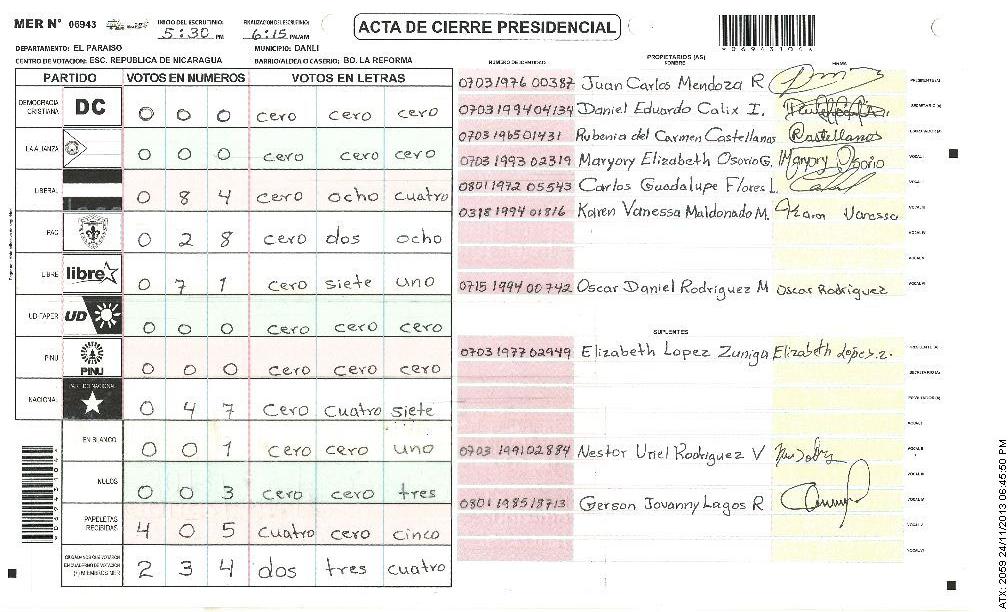 MER N° 06943
INICIO DEL ESCRUTINIO: 5:30 PM
FINALIZACION DEL ESCRUTINIO: 6:15 PM/AM
ACTA DE CIERRE PRESIDENCIAL
06943104
DEPARTAMENTO: EL PARAISO
MUNICIPIO: DANLI
CENTRO DE VOTACION: ESC. REPUBLICA DE NICARAGUA
BARRIO/ALDEA O CASERIO: BO. LA REFORMA
PARTIDO VOTOS EN NUMEROS VOTOS EN LETRAS
DEMOCRACIA CRISTIANA DC 0 0 0 cero cero cero
LA ALIANZA 0 0 0 cero cero cero
LIBERAL 0 8 4 cero ocho cuatro
PAC 0 2 8 cero dos ocho
LIBRE libre 0 7 1 cero siete uno
UD-FAPER UD 0 0 0 cero cero cero
PINU PINU 0 0 0 cero cero cero
NACIONAL PARTIDO NACIONAL 0 4 7 cero cuatro siete
EN BLANCO 0 0 1 cero cero uno
NULOS 0 0 3 cero cero tres
PAPELETAS RECIBIDAS 4 0 5 cuatro cero cinco
CIUDADANOS QUE VOTARON EN CUADERNO DE VOTACION (+) MIEMBROS MER 2 3 4 dos tres cuatro
PROPIETARIOS (AS)
NUMERO DE IDENTIDAD NOMBRE FIRMA
0703 1976 00387 Juan Carlos Mendoza R PRESIDENTE(A)
0703 1994 04134 Daniel Eduardo Calix I. SECRETARIO(A)
0703 1965 01431 Rubenia del Carmen Castellanos Rastellanos ESCRUTADOR(A)
0703 1993 02319 Maryory Elizabeth Osorio G. Maryory Osorio VOCAL I
0801 1972 05543 Carlos Guadalupe Flores L. VOCAL II
0318 1994 01816 Karen Vanessa Maldonado M. Karen Vanessa VOCAL III
VOCAL IV
VOCAL V
0715 1994 00742 Oscar Daniel Rodriguez M Oscar Rodriguez VOCAL VI
SUPLENTES
0703 1977 02949 Elizabeth Lopez Zuniga Elizabeth Lopez z. PRESIDENTE(A)
SECRETARIO(A)
ESCRUTADOR(A)
VOCAL I
0703 1991 02884 Nestor Uriel Rodriguez V VOCAL II
VOCAL III
0801 1985 18713 Gerson Jovanny Lagos R VOCAL IV
VOCAL V
VOCAL VI
ATX: 2059 24/11/2013 06:45:50 PM